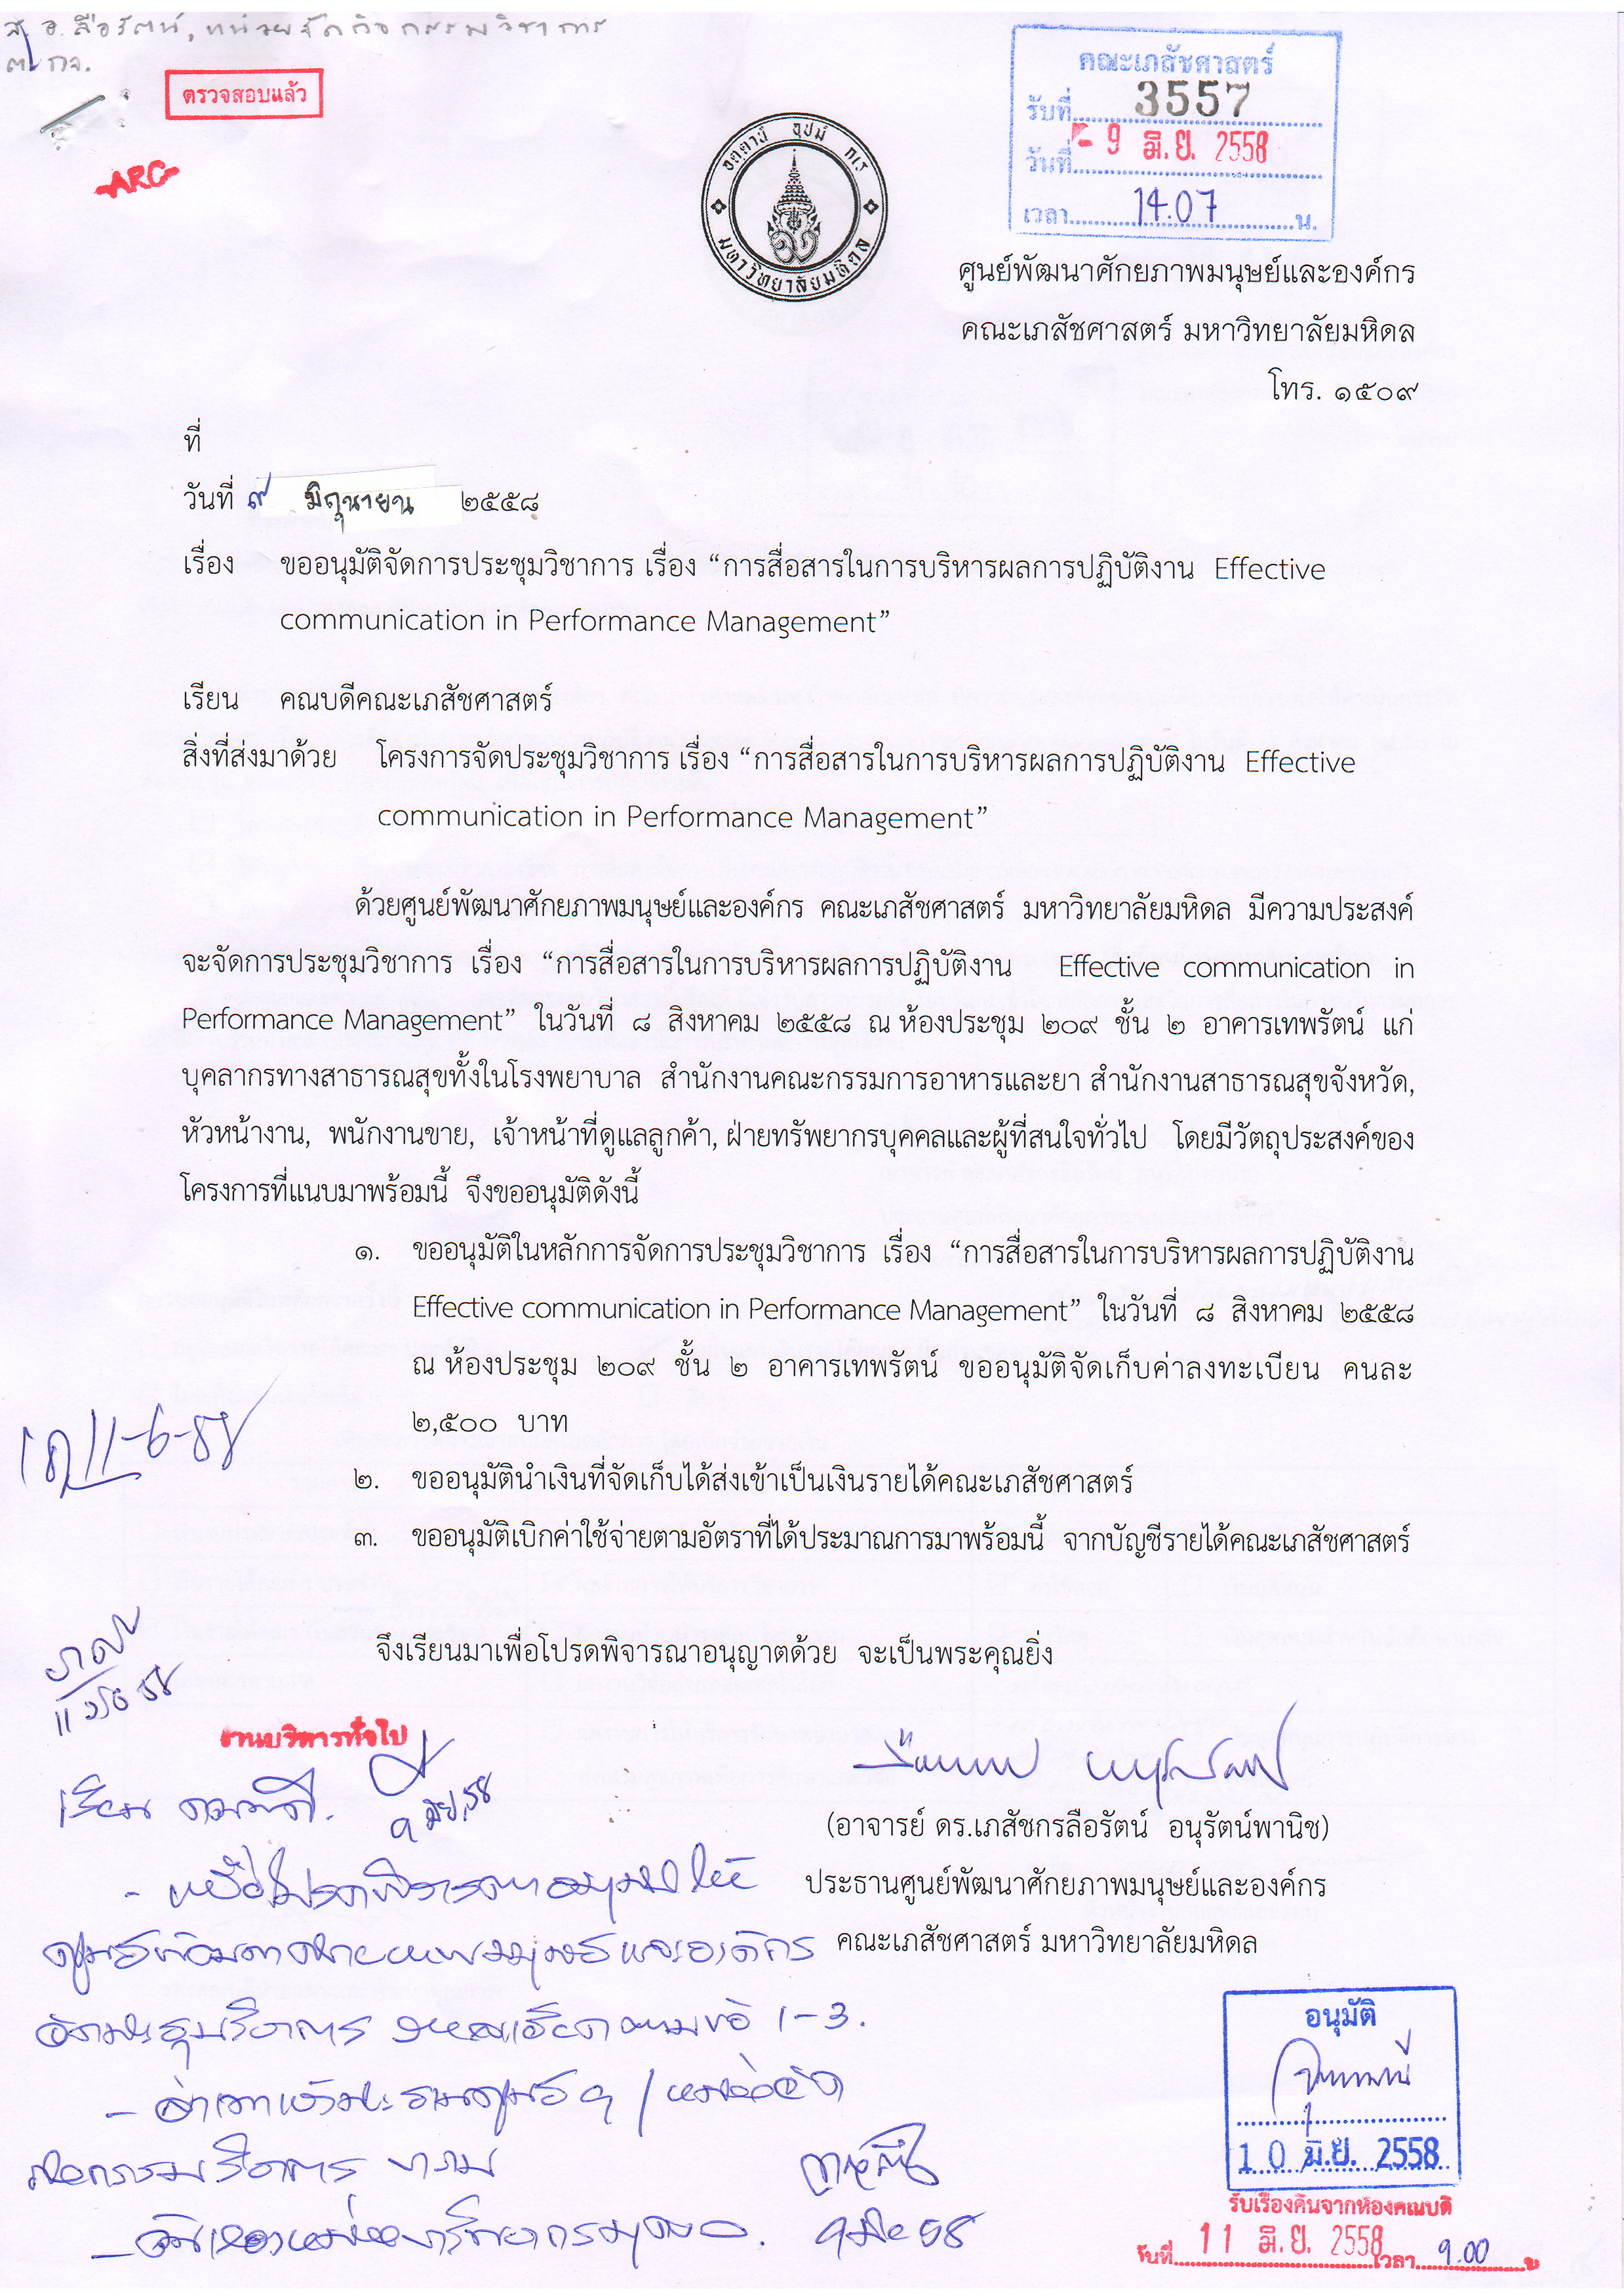 ส. อ.ลือรัตน์, หน่วยจัดกิจกรรมวิชาการ
ตรวจสอบแล้ว
ARC
คณะเภสัชศาสตร์
รับที่ 3557
วันที่ - 9 มิ.ย. 2558
เวลา 14.07 น.
อตฺตานํ อุปมํ กเร
มหาวิทยาลัยมหิดล
ศูนย์พัฒนาศักยภาพมนุษย์และองค์กร
คณะเภสัชศาสตร์ มหาวิทยาลัยมหิดล
โทร. ๑๕๐๙
ที่
วันที่ ๙ มิถุนายน ๒๕๕๘
เรื่อง ขออนุมัติจัดการประชุมวิชาการ เรื่อง “การสื่อสารในการบริหารผลการปฏิบัติงาน Effective
communication in Performance Management”
เรียน คณบดีคณะเภสัชศาสตร์
สิ่งที่ส่งมาด้วย โครงการจัดประชุมวิชาการ เรื่อง “การสื่อสารในการบริหารผลการปฏิบัติงาน Effective
communication in Performance Management”
ด้วยศูนย์พัฒนาศักยภาพมนุษย์และองค์กร คณะเภสัชศาสตร์ มหาวิทยาลัยมหิดล มีความประสงค์
จะจัดการประชุมวิชาการ เรื่อง “การสื่อสารในการบริหารผลการปฏิบัติงาน Effective communication in
Performance Management” ในวันที่ ๘ สิงหาคม ๒๕๕๘ ณ ห้องประชุม ๒๐๙ ชั้น ๒ อาคารเทพรัตน์ แก่
บุคลากรทางสาธารณสุขทั้งในโรงพยาบาล สำนักงานคณะกรรมการอาหารและยา สำนักงานสาธารณสุขจังหวัด,
หัวหน้างาน, พนักงานขาย, เจ้าหน้าที่ดูแลลูกค้า, ฝ่ายทรัพยากรบุคคลและผู้ที่สนใจทั่วไป โดยมีวัตถุประสงค์ของ
โครงการที่แนบมาพร้อมนี้ จึงขออนุมัติดังนี้
๑. ขออนุมัติในหลักการจัดการประชุมวิชาการ เรื่อง “การสื่อสารในการบริหารผลการปฏิบัติงาน
Effective communication in Performance Management” ในวันที่ ๘ สิงหาคม ๒๕๕๘
ณ ห้องประชุม ๒๐๙ ชั้น ๒ อาคารเทพรัตน์ ขออนุมัติจัดเก็บค่าลงทะเบียน คนละ
๒,๕๐๐ บาท
๒. ขออนุมัตินำเงินที่จัดเก็บได้ส่งเข้าเป็นเงินรายได้คณะเภสัชศาสตร์
๓. ขออนุมัติเบิกค่าใช้จ่ายตามอัตราที่ได้ประมาณการมาพร้อมนี้ จากบัญชีรายได้คณะเภสัชศาสตร์
11-6-58
จึงเรียนมาเพื่อโปรดพิจารณาอนุญาตด้วย จะเป็นพระคุณยิ่ง
11 มิย 58
งานบริหารทั่วไป
9 มิย. 58
เรียน คณบดี
(อาจารย์ ดร.เภสัชกรลือรัตน์ อนุรัตน์พานิช)
ประธานศูนย์พัฒนาศักยภาพมนุษย์และองค์กร
คณะเภสัชศาสตร์ มหาวิทยาลัยมหิดล
- เพื่อโปรดพิจารณาอนุมัติให้
ศูนย์พัฒนาศักยภาพมนุษย์และองค์กร
จัดประชุมวิชาการ รายละเอียดตามข้อ 1-3.
- สำเนาแจ้งประธานศูนย์ฯ / หน่วยจัด
กิจกรรมวิชาการ
9 มิย 58
อนุมัติ
10 มิ.ย. 2558
รับเรื่องคืนจากห้องคณบดี
วันที่ 11 มิ.ย. 2558 เวลา 9.00 น